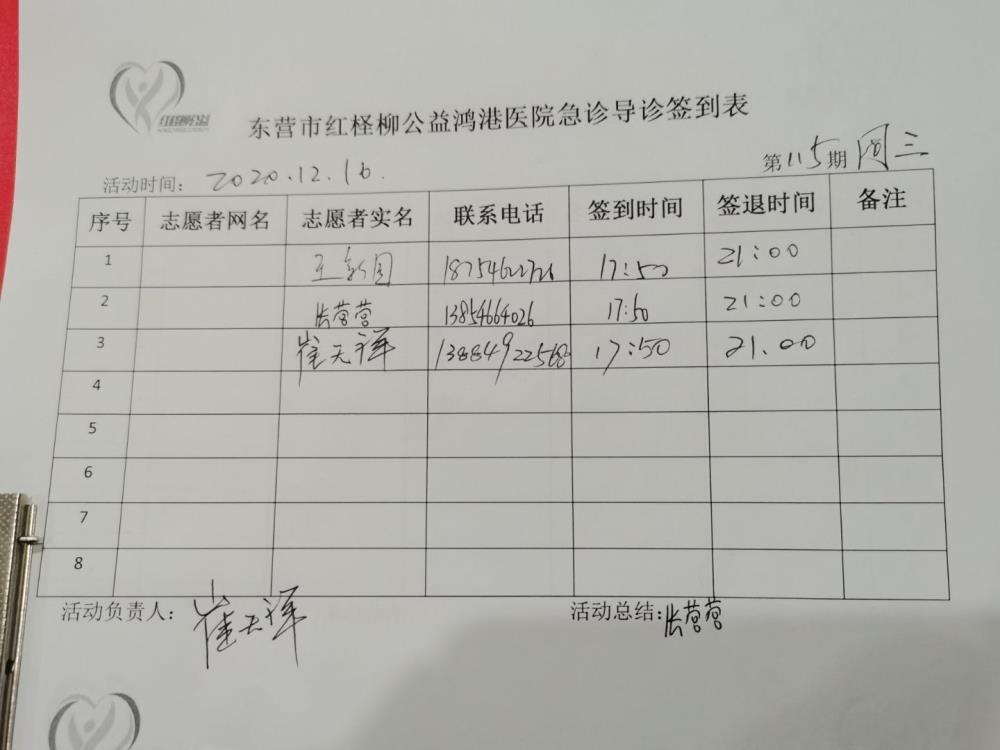 红柽柳公益
东营市红柽柳公益鸿港医院急诊导诊签到表
活动时间: 2020.12.16. 第115期 周三
序号 志愿者网名 志愿者实名 联系电话 签到时间 签退时间 备注
1 王新国 17:50 21:00
2 营营 13854664026 17:50 21:00
3 崔天祥 13884922568 17:50 21.00
4
5
6
7
8
活动负责人: 崔天祥 活动总结: 营营